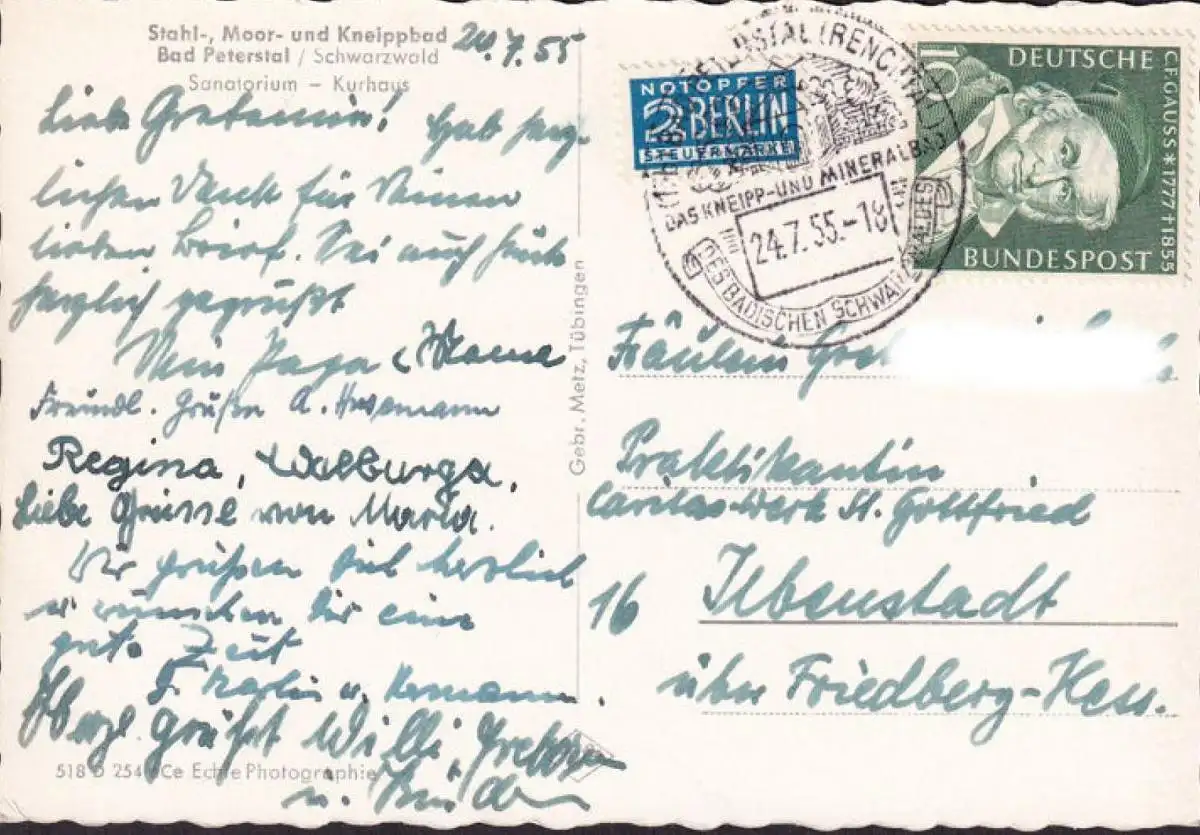 Stahl-, Moor- und Kneippbad
Bad Peterstal / Schwarzwald
Sanatorium – Kurhaus
24.7.55
Liebe Gretamie! Hab herz-
lichen Dank für Deinen
lieben Brief. Sei auch heute
herzlich gegrüßt
Dein Papa Mama
Freundl. Grüßen A. Husmann
Regina, Walburga,
Liebe Grüsse von Maria.
Wir grüßen dich herzlich
u wünschen dir eine
gute Zeit
u. Hermann.
Herzl. grüßt Willi,
u.
518 D 254 Ce Echte Photographie
Gebr. Metz, Tübingen
NOTOPFER
2 BERLIN
STEUERMARKE
PETERSTAL (RENCHTAL)
DAS KNEIPP- UND MINERALBAD
24.7.55.-18
DES BADISCHEN SCHWARZWALDES
10
DEUTSCHE
BUNDESPOST
C.F. GAUSS * 1777 † 1855
Fräulein Gret
Praktikantin
Caritas-Werk St. Gottfried
16 Ilbenstadt
über Friedberg-Hess.